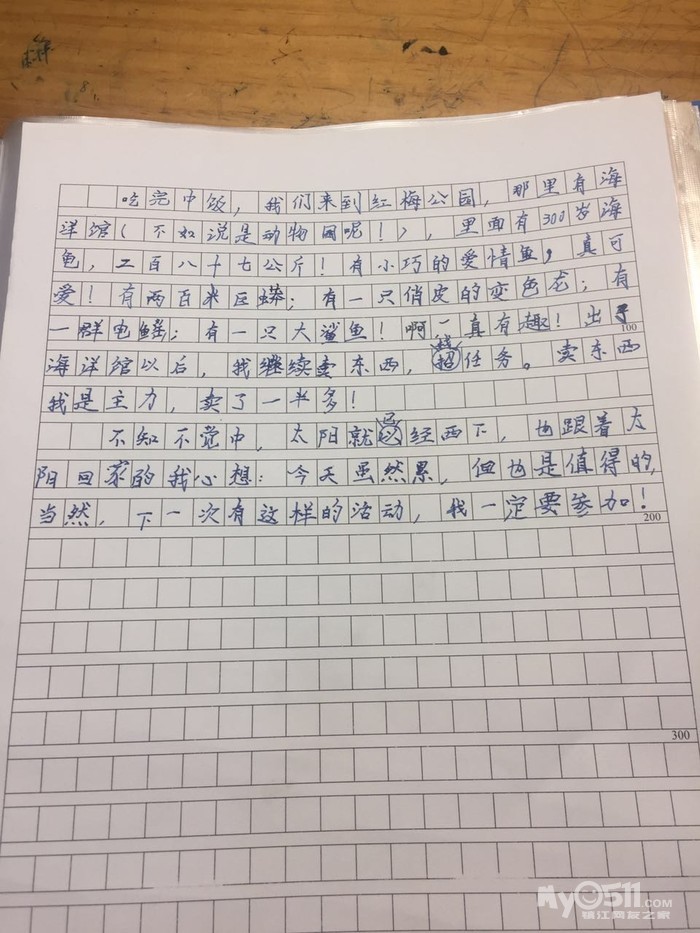 吃完中饭，我们来到红梅公园，那里有海
洋馆（不如说是动物园呢！），里面有300岁海
龟，二百八十七公斤！有小巧的爱情鱼，真可
爱！有两百米巨蟒；有一只俏皮的变色龙；有
一群电鳐；有一只大鲨鱼！啊——真有趣！出了
100
海洋馆以后，我继续卖东西，找任务。卖东西
我是主力，卖了一半多！
不知不觉中，太阳就已经西下，也跟着太
阳回家的我心想：今天虽然累，但也是值得的，
当然，下一次有这样的活动，我一定要参加！
200
300
My0511.COM
镇江网友之家